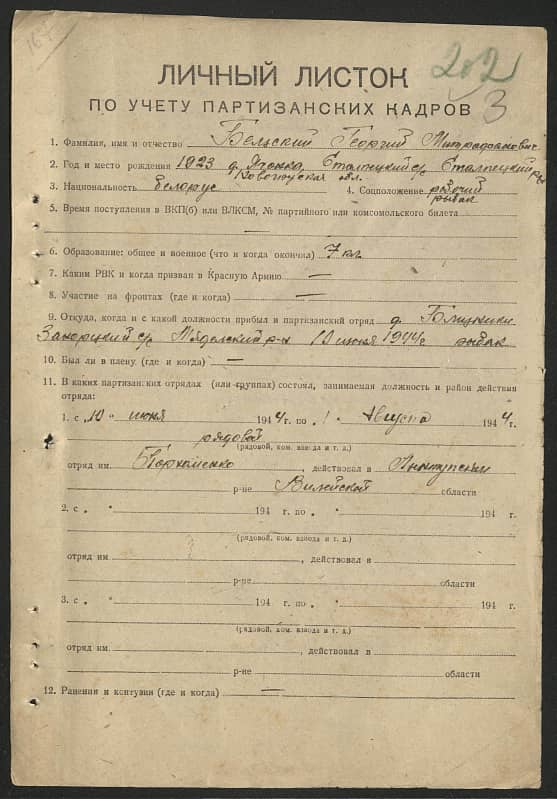 202
3
ЛИЧНЫЙ ЛИСТОК
ПО УЧЕТУ ПАРТИЗАНСКИХ КАДРОВ
1. Фамилия, имя и отчество Бельский Георгий Митрофанович
2. Год и место рождения 1923 д. Столпецкий с/с Столпецкий р-н
обл.
3. Национальность белорус 4. Соцположение рабочий
рыбак
5. Время поступления в ВКП(б) или ВЛКСМ, № партийного или комсомольского билета
6. Образование: общее и военное (что и когда окончил) 7 кл.
7. Каким РВК и когда призван в Красную Армию —
8. Участие на фронтах (где и когда) —
9. Откуда, когда и с какой должности прибыл в партизанский отряд д.
с/с Мядельский р-н 10 июня 1944 г рыбак
10. Был ли в плену (где и когда) —
11. В каких партизанских отрядах (или группах) состоял, занимаемая должность и район действия
отряда:
1. с „10" июня 1944 г. по „1" Августа 1944 г.
рядовой
(рядовой, ком. взвода и т. д.)
отряд им. Пархоменко, действовал в
р-не Вилейской области
2. с „ " 194 г. по „ " 194 г.
(рядовой, ком. взвода и т. д.)
отряд им. , действовал в
р-не области
3. с „ " 194 г. по „ " 194 г.
(рядовой, ком. взвода и т. д.)
отряд им. , действовал в
р-не области
12. Ранения и контузии (где и когда) —